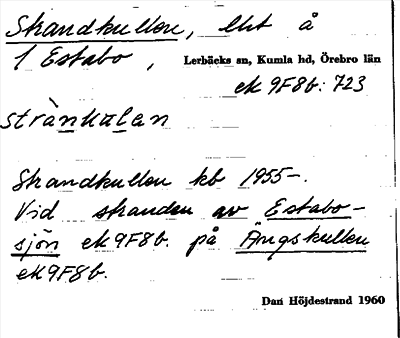 Strandkullen, lht å
1 Estabo, Lerbäcks sn, Kumla hd, Örebro län
ek 9F8b: 723
stránkalan
Strandkullen kb 1955-.
Vid stranden av Estabo-
sjön ek 9F8b. på Ängskullen
ek 9F8b.
Dan Höjdestrand 1960